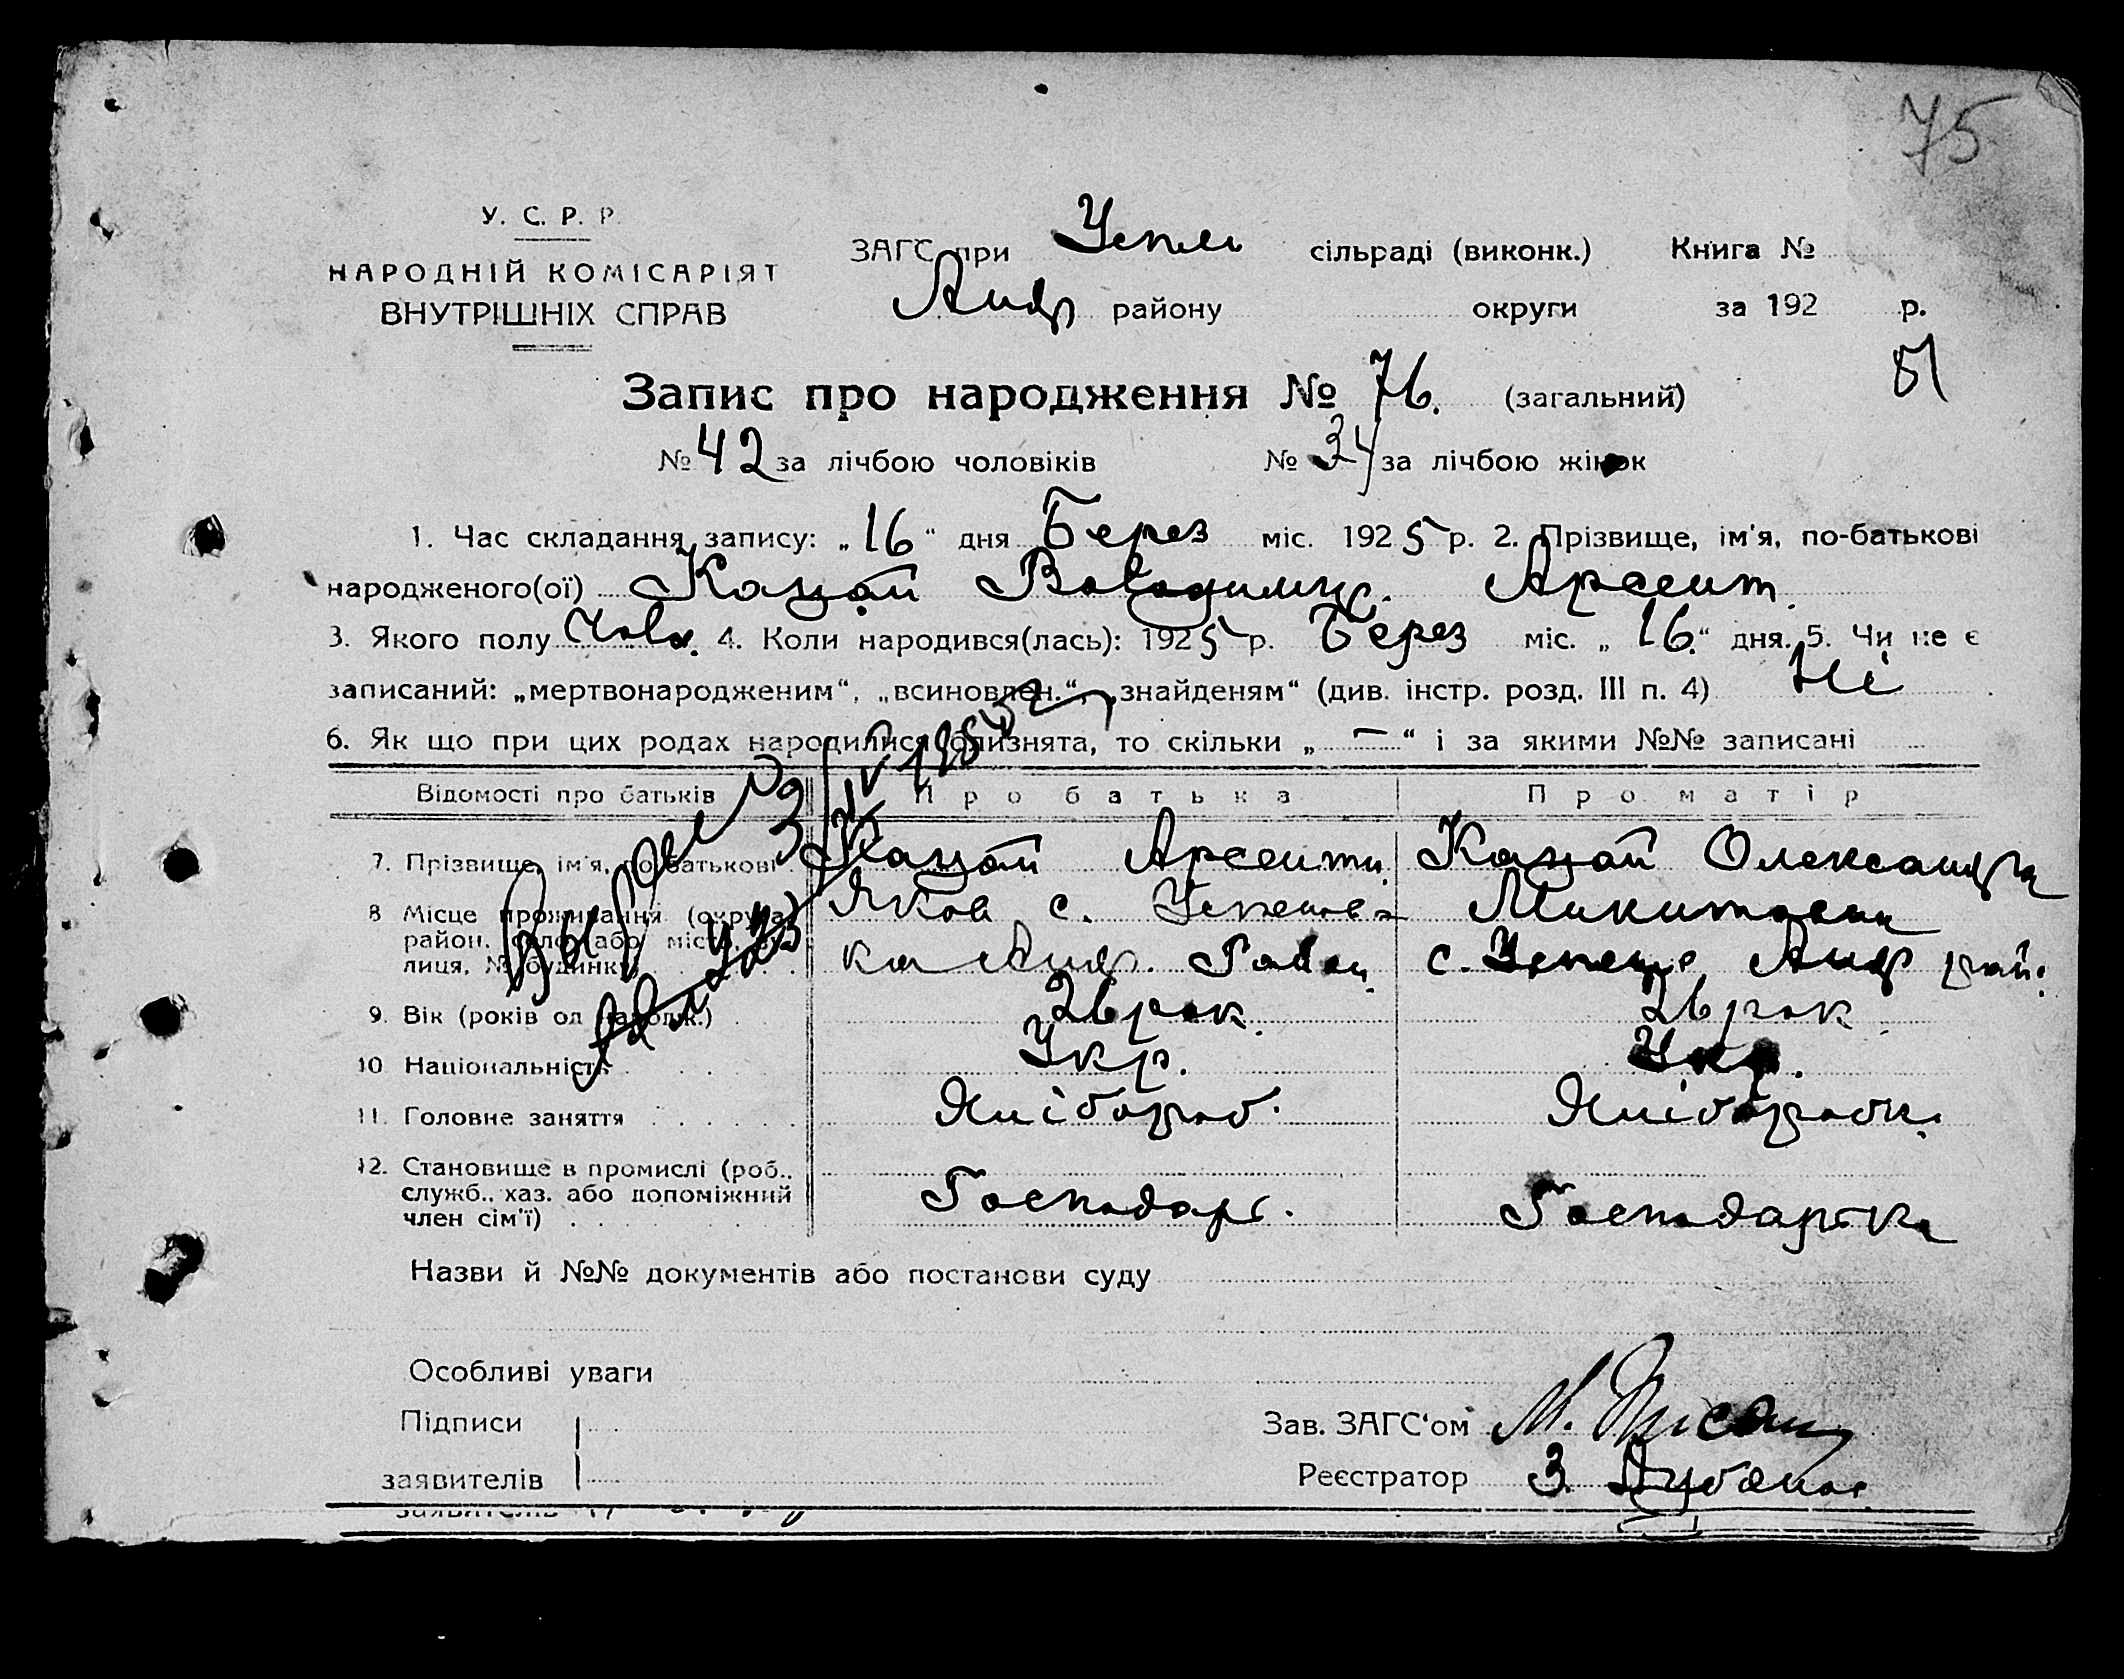 75
У. С. Р. Р.
НАРОДНІЙ КОМІСАРІЯТ
ВНУТРІШНІХ СПРАВ
ЗАГС при Успен сільраді (виконк.) Книга №
Андр району округи за 192 р.
51
Запис про народження № 76. (загальний)
№ 42 за лічбою чоловіків № 34 за лічбою жінок
1. Час складання запису: „16“ дня Берез міс. 1925 р. 2. Прізвище, ім'я, по-батькові
народженого(ої) Кацай Володимир. Арсент.
3. Якого полу Чолв. 4. Коли народився(лась): 1925 р. Берез міс. „16.“ дня. 5. Чи не є
записаний: „мертвонародженим“, „всиновлен.“, „знайденям“ (див. інстр. розд. III п. 4) Ні
6. Як що при цих родах народилися близнята, то скільки „—“ і за якими №№ записані
Відомості про батьків Про батька Про матір
7. Прізвище, ім'я, по-батькові Кацай Арсентий Кацай Олександра
8 Місце проживання (округа, Яков с. Успенов- Микитовна
район, село (або місто, ву- ка Андр. Район с. Успенів Андр рай.
лиця, № будинку)
9. Вік (років од народж.) 26 рок. 26 рок
10 Національність Укр. Укр.
11. Головне заняття Хлібороб. Хлібороби.
12. Становище в промислі (роб.,
служб., хаз. або допоміжний Господарь. Господарька
член сім'ї)
Назви й №№ документів або постанови суду
Особливі уваги
Підписи
Зав. ЗАГС'ом М.
заявителів
Реєстратор З.